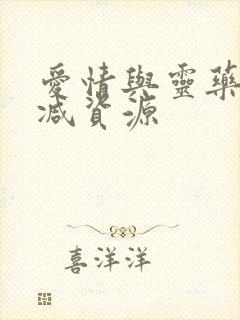 愛情與靈藥
減資源
喜洋洋